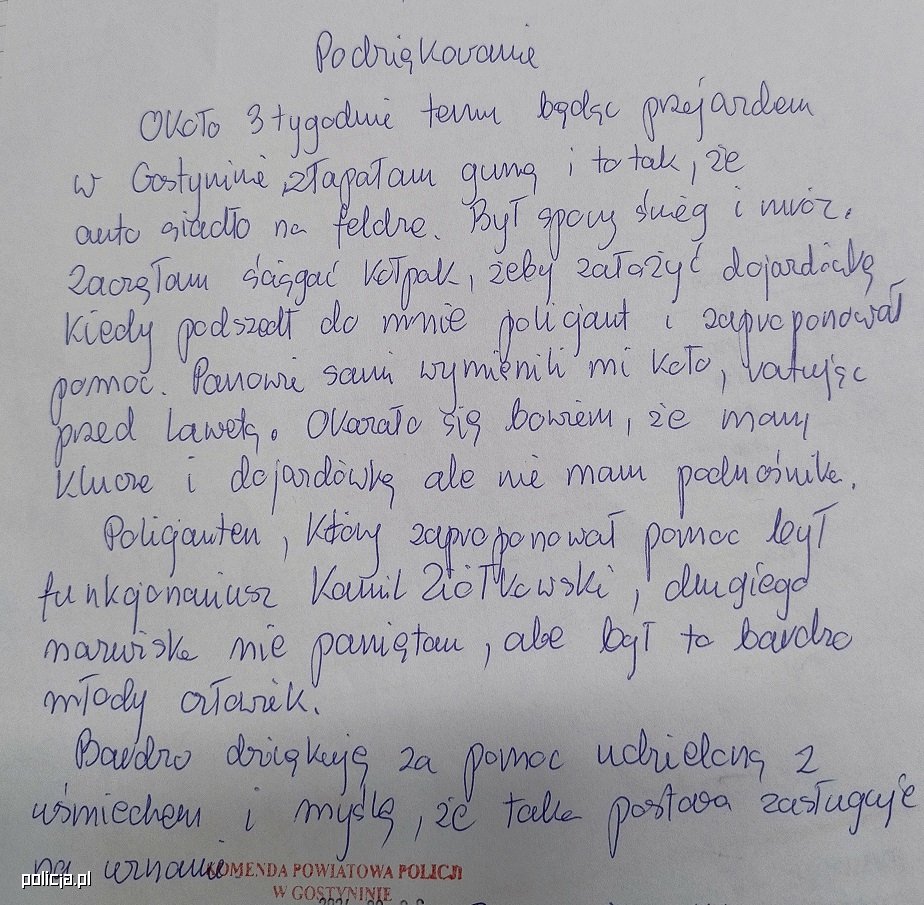 Podziękowanie
Około 3 tygodnie temu będąc przejazdem
w Gostyninie, złapałam gumę i to tak, że
auto siadło na feldze. Był spory śnieg i mróz.
Zaczęłam ściągać kołpak, żeby założyć dojazdówkę
kiedy podszedł do mnie policjant i zaproponował
pomoc. Panowie sami wymienili mi koło, ratując
przed lawetą. Okazało się bowiem, że mam
klucze i dojazdówkę ale nie mam podnośnika.
Policjantem, który zaproponował pomoc był
funkcjonariusz Kamil Ziółkowski, drugiego
nazwiska nie pamiętam, ale był to bardzo
młody człowiek.
Bardzo dziękuję za pomoc udzieloną z
uśmiechem i myślę, że taka postawa zasługuje
na uznanie
KOMENDA POWIATOWA POLICJI
W GOSTYNINIE
policja.pl